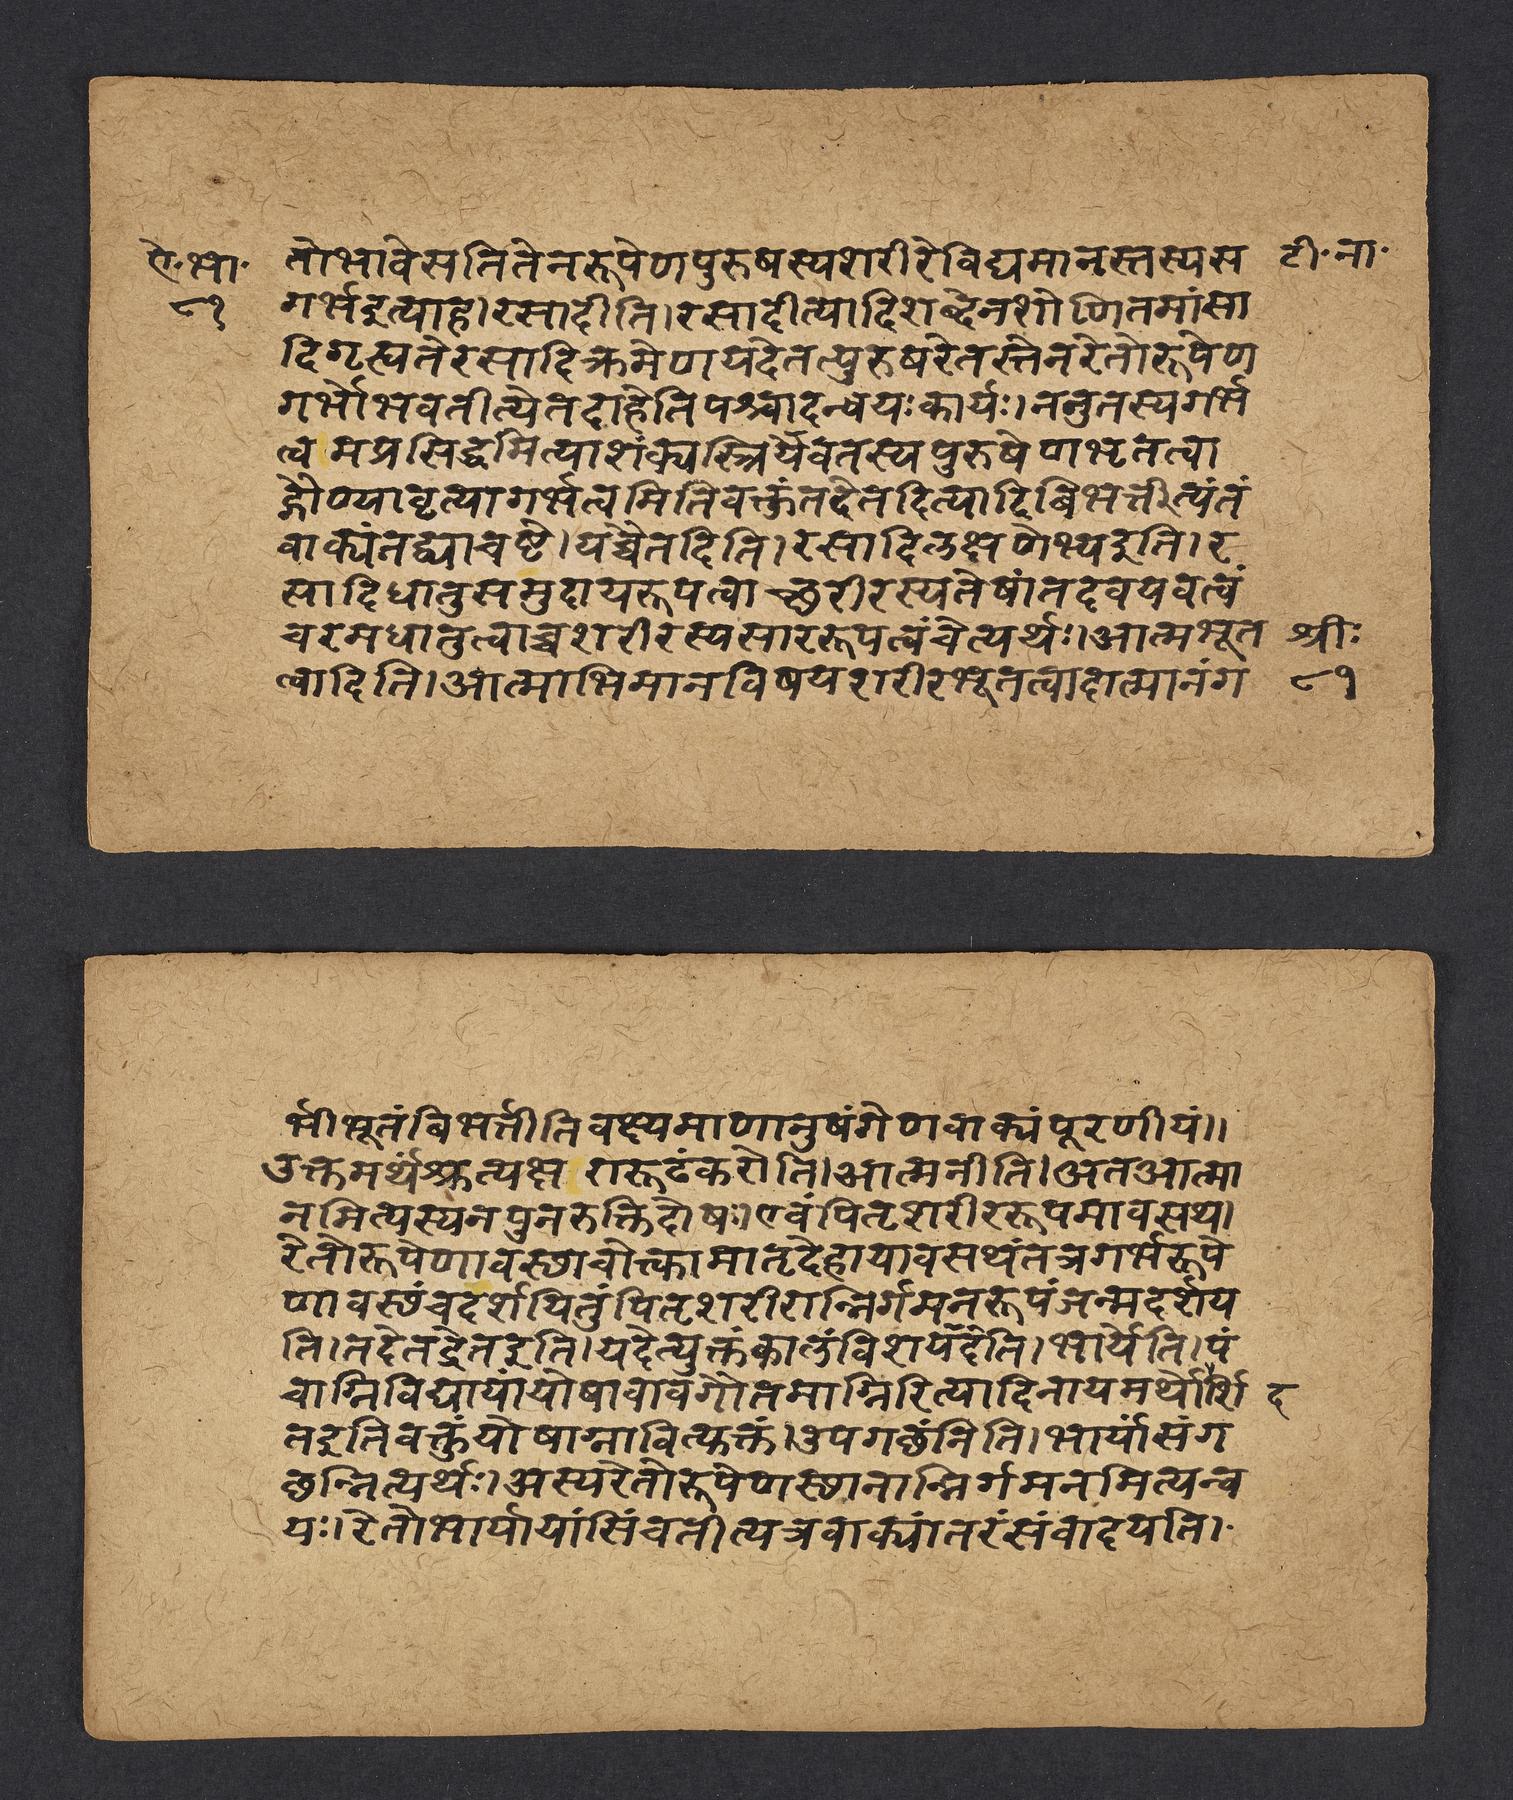 ऐ·भा· तोभावेसतितेनरूपेणपुरुषस्यशरीरेविद्यमानस्तस्यस टी·ना·
८१ गर्भइत्याह।रसादीति।रसादीत्यादिशब्देनशोणितमांसा
दिगृह्यतेरसादिक्रमेणयदेतत्पुरुषरेतस्तेनरेतोरूपेण
गर्भोभवतीत्येतदाहेतिपश्चादन्वयःकार्यः।ननुतस्यगर्भ
त्वमप्रसिद्धमित्याशंक्यस्त्रियेवतस्यपुरुषेणभृतत्वा
द्गौण्यावृत्यागर्भत्वमितिवक्तुंतदेतदित्यादिबिभर्त्तीत्यंतं
वाक्यंतद्व्याचष्टे।यच्चैतदिति।रसादिलक्षणेभ्यइति।र
सादिधातुसमुदायरूपत्वाच्छरीरस्यतेषांतदवयवत्वं
चरमधातुत्वाच्चशरीरस्यसाररूपत्वंचेत्यर्थः।आत्मभूत श्रीः
त्वादिति।आत्माभिमानविषयशरीरभूतत्वादात्मानंग ८१
र्भीभूतंबिभर्त्तीतिवक्ष्यमाणानुषंगेणवाक्यंपूरणीयं॥
उक्तमर्थंश्रुत्यक्षरारूढंकरोति।आत्मनीति।अतआत्मा
नमित्यस्यनपुनरुक्तिदोषः।एवंपितृशरीररूपमावसथ।
रेतोरूपेणावस्छाचोत्कामातृदेहायावसथंतत्रगर्भरूपे
णावस्छंचदर्शयितुंपितृशरीरान्निर्गमनरूपंजन्मदर्शय
ति।तदेतद्रेतइति।यदेत्युक्तंकालंविशयदेति।भार्येति।पं
चाग्निविद्यायांयोषावावगौतमाग्निरित्यादिनायमर्थोर्शि द
तइतिवक्तुंयोषाग्नावित्युक्तं।उपगछंनिति।भार्यांसंग
छन्नित्यर्थः।अस्यरेतोरूपेणस्छानान्निर्गमनमित्यन्व
यः।रेतोभार्यायांसिंचतीत्यत्रवाक्यांतरंसंवादयति।